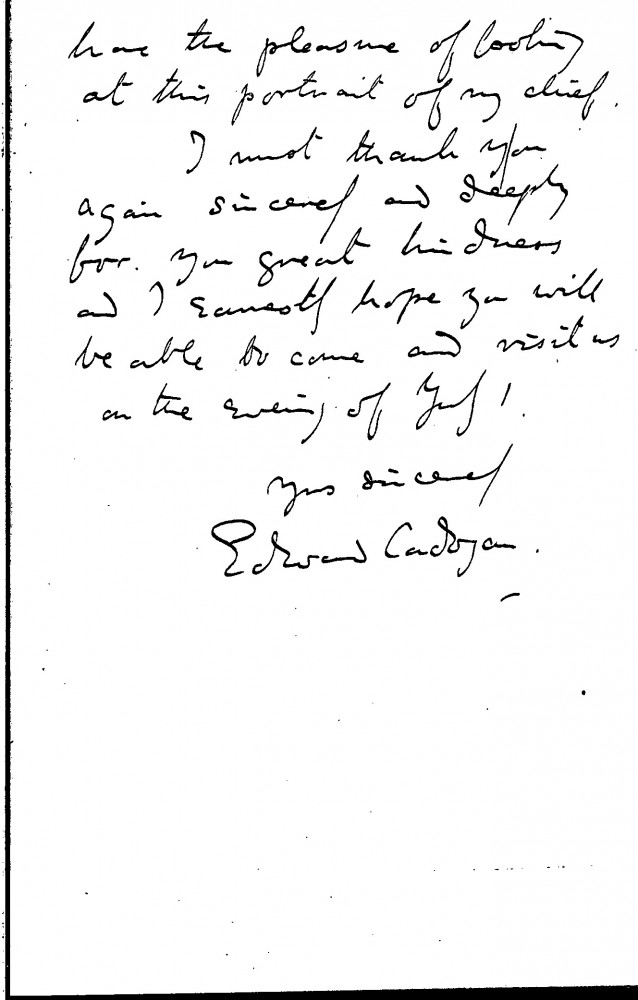 have the pleasure of looking
at this portrait of my chief.
I must thank you
again sincerely and deeply
for your great kindness
and I earnestly hope you will
be able to come and visit us
on the evening of July 1.
Yrs sincerely
Edward Cadogan.